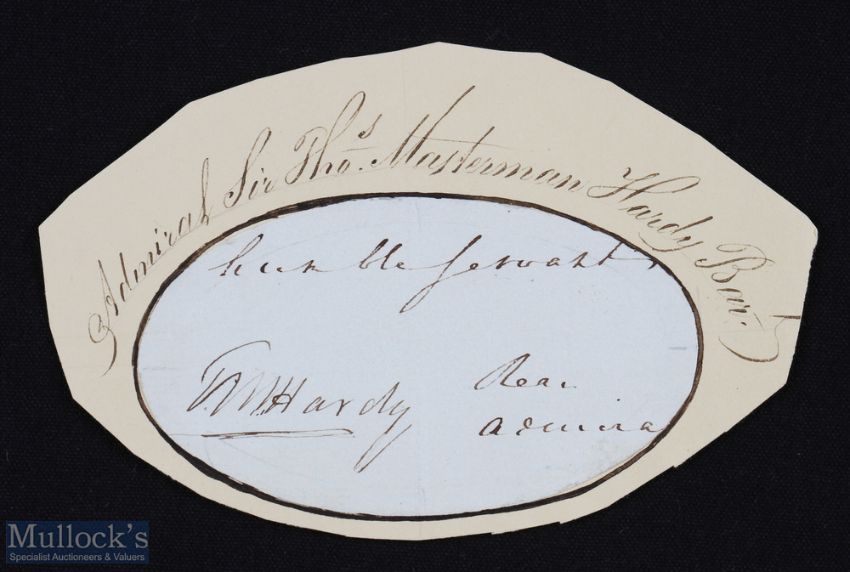 Admiral Sir Tho.s Masterman Hardy Bart.
humble servant
TMHardy
Rear
Admira
Mullock's
Specialist Auctioneers & Valuers